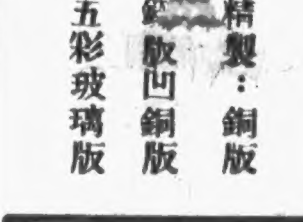 精製：銅版
版凹銅版
五彩玻璃版